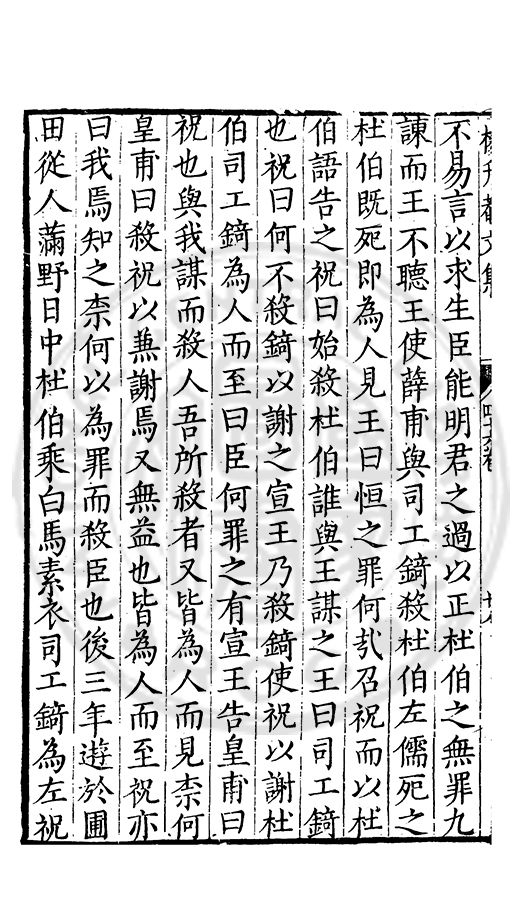 不易言以求生臣能明君之過以正杜伯之無罪九
諫而王不聽王使薛甫與司工錡殺杜伯左儒死之
杜伯既死即為人見王曰恒之罪何㢤召祝而以杜
伯語告之祝曰始殺杜伯誰與王謀之王曰司工錡
也祝曰何不殺錡以謝之宣王乃殺錡使祝以謝杜
伯司工錡為人而至曰臣何罪之有宣王告皇甫曰
祝也與我謀而殺人吾所殺者又皆為人而見柰何
皇甫曰殺祝以兼謝焉又無益也皆為人而至祝亦
曰我焉知之柰何以為罪而殺臣也後三年遊於圃
田從人滿野日中杜伯乘白馬素衣司工錡為左祝